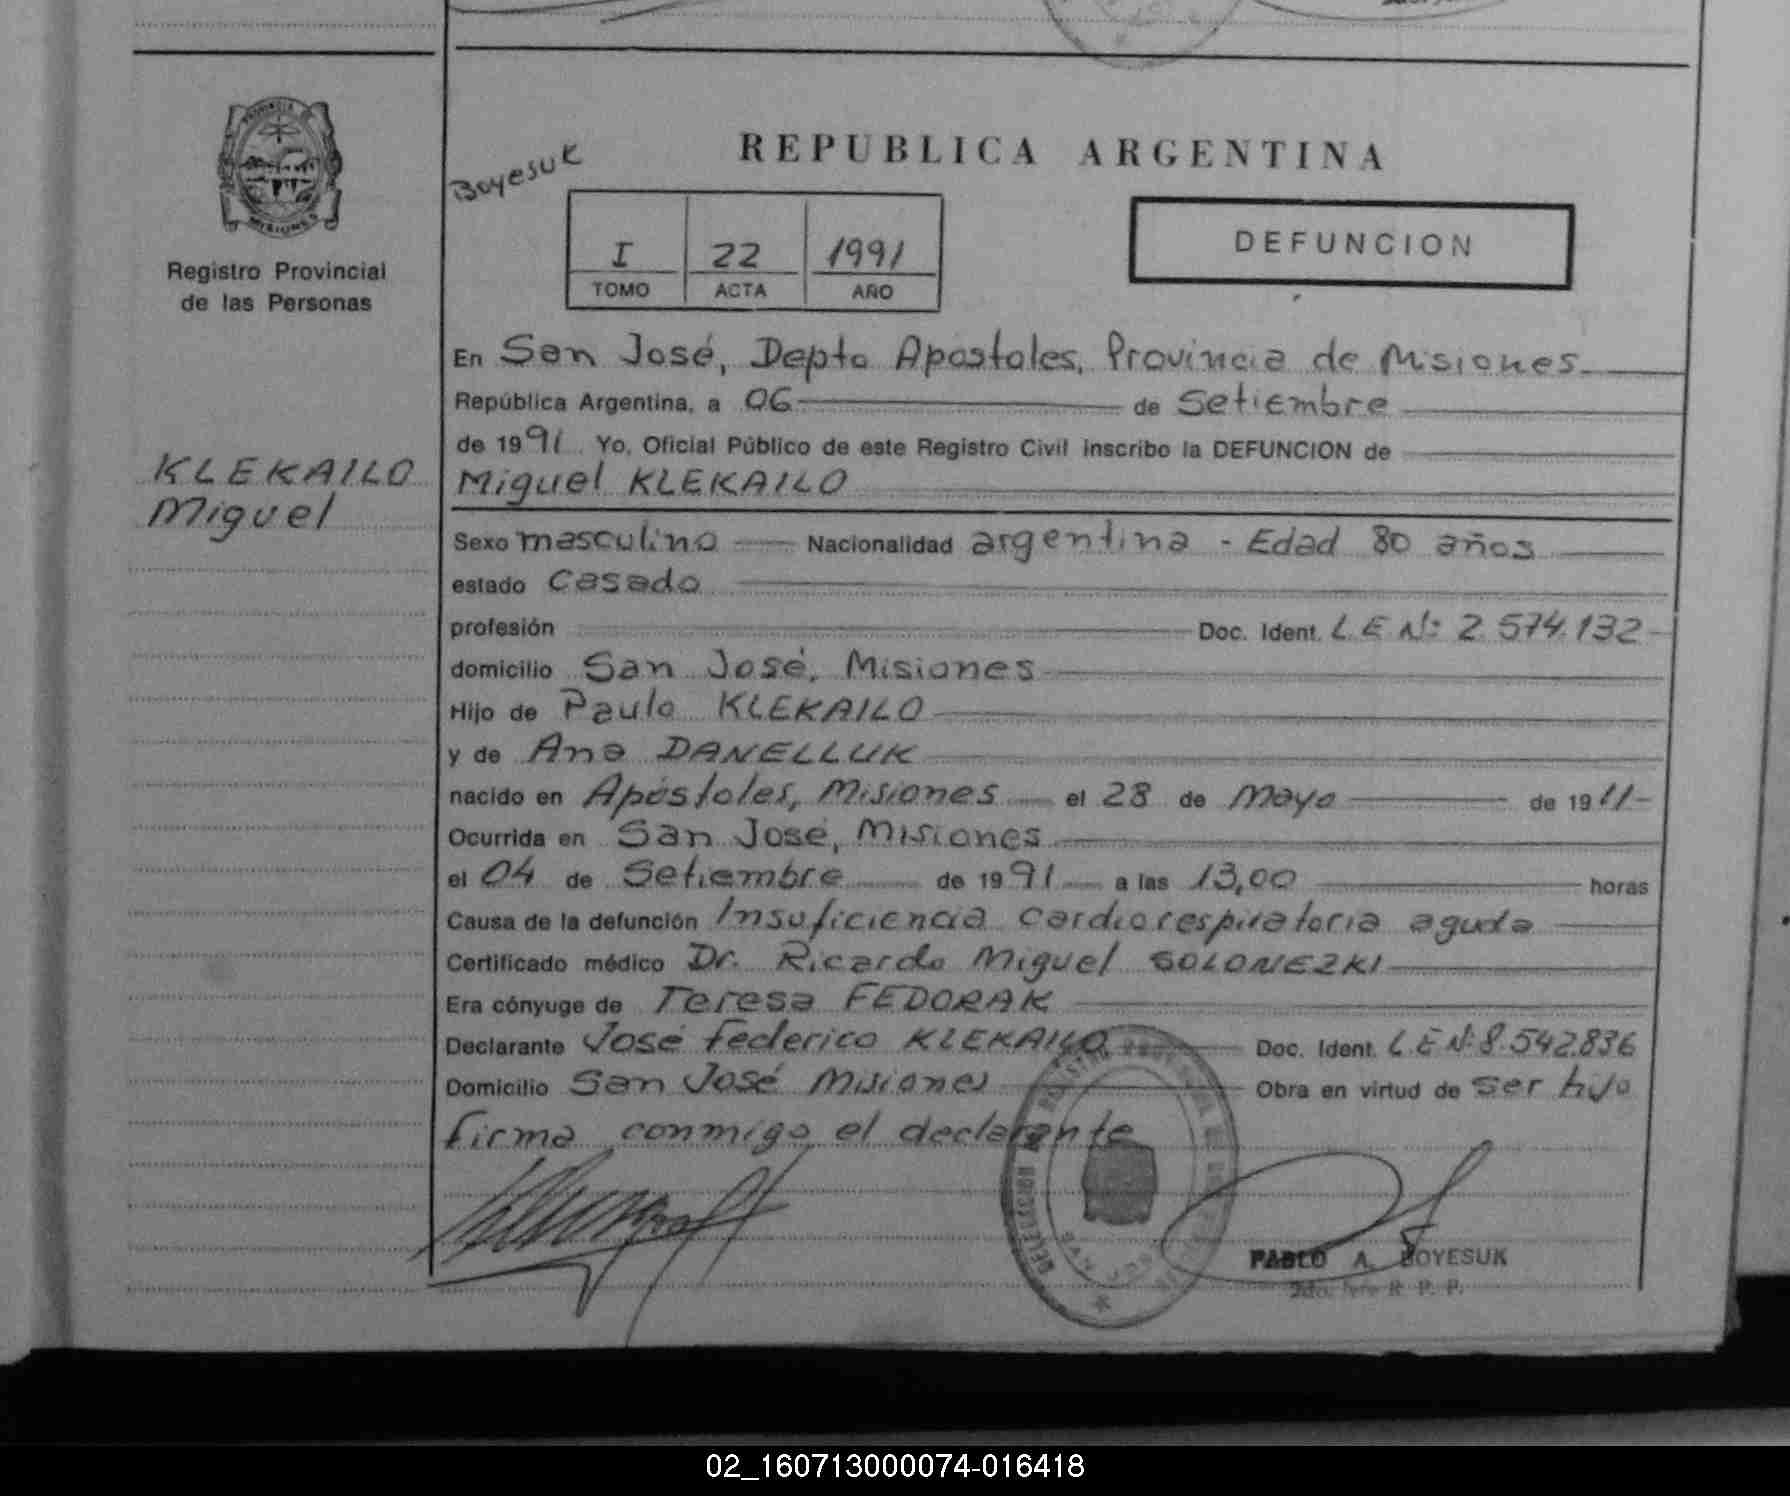 PROVINCIA
MISIONES
Registro Provincial
de las Personas
KLEKAILO
Miguel
Boyesuk
REPUBLICA ARGENTINA
I 22 1991
TOMO ACTA AÑO
DEFUNCION
En San José, Depto Apostoles, Provincia de Misiones
República Argentina, a 06 de Setiembre
de 1991 Yo, Oficial Público de este Registro Civil inscribo la DEFUNCION de
Miguel KLEKAILO
Sexo masculino Nacionalidad argentina - Edad 80 años
estado Casado
profesión Doc. Ident. L.E Nº: 2.574.132
domicilio San José, Misiones
Hijo de Paulo KLEKAILO
y de Ana DANELLUK
nacido en Apóstoles, Misiones el 28 de Mayo de 1911-
Ocurrida en San José, Misiones
el 04 de Setiembre de 1991 a las 13,00 horas
Causa de la defunción Insuficiencia cardiorespiratoria aguda
Certificado médico Dr. Ricardo Miguel SOLONEZKI
Era cónyuge de Teresa FEDORAK
Declarante José Federico KLEKAILO Doc. Ident. L.E Nº: 8.542.836
Domicilio San José Misiones Obra en virtud de ser hijo
firma conmigo el declarante
SAN JOSE
PABLO A. BOYESUK
R. P. P.
02_160713000074-016418